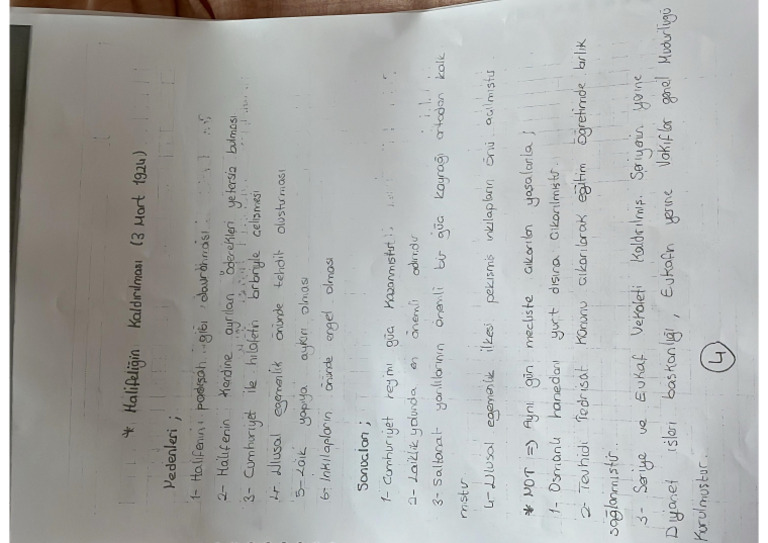 * Halifeliğin Kaldırılması (3 Mart 1924)
Nedenleri ;
1- Halifenin padişah gibi davranması
2- Halifenin kendine ayrılan ödenekleri yetersiz bulması
3- Cumhuriyet ile hilafetin birbiriyle çelişmesi
4- Ulusal egemenlik önünde tehdit oluşturması
5- Laik yapıya aykırı olması
6- İnkılapların önünde engel olması
Sonuçları ;
1- Cumhuriyet rejimi güç kazanmıştır.
2- Laiklik yolunda en önemli adımdır
3- Saltanat yanlılarının önemli bir güç kaynağı ortadan kalk
mıştır
4- Ulusal egemenlik ilkesi pekişmiş inkılapların önü açılmıştır
* NOT => Aynı gün mecliste çıkarılan yasalarla ;
1- Osmanlı hanedanı yurt dışına çıkarılmıştır.
2- Tevhidi Tedrisat Kanunu çıkarılarak eğitim öğretimde birlik
sağlanmıştır.
3- Şeriye ve Evkaf Vekaleti Kaldırılmış. Şeriyenin yerine
Diyanet işleri başkanlığı, Evkafın yerine Vakıflar genel Müdürlüğü
Kurulmuştur.
4